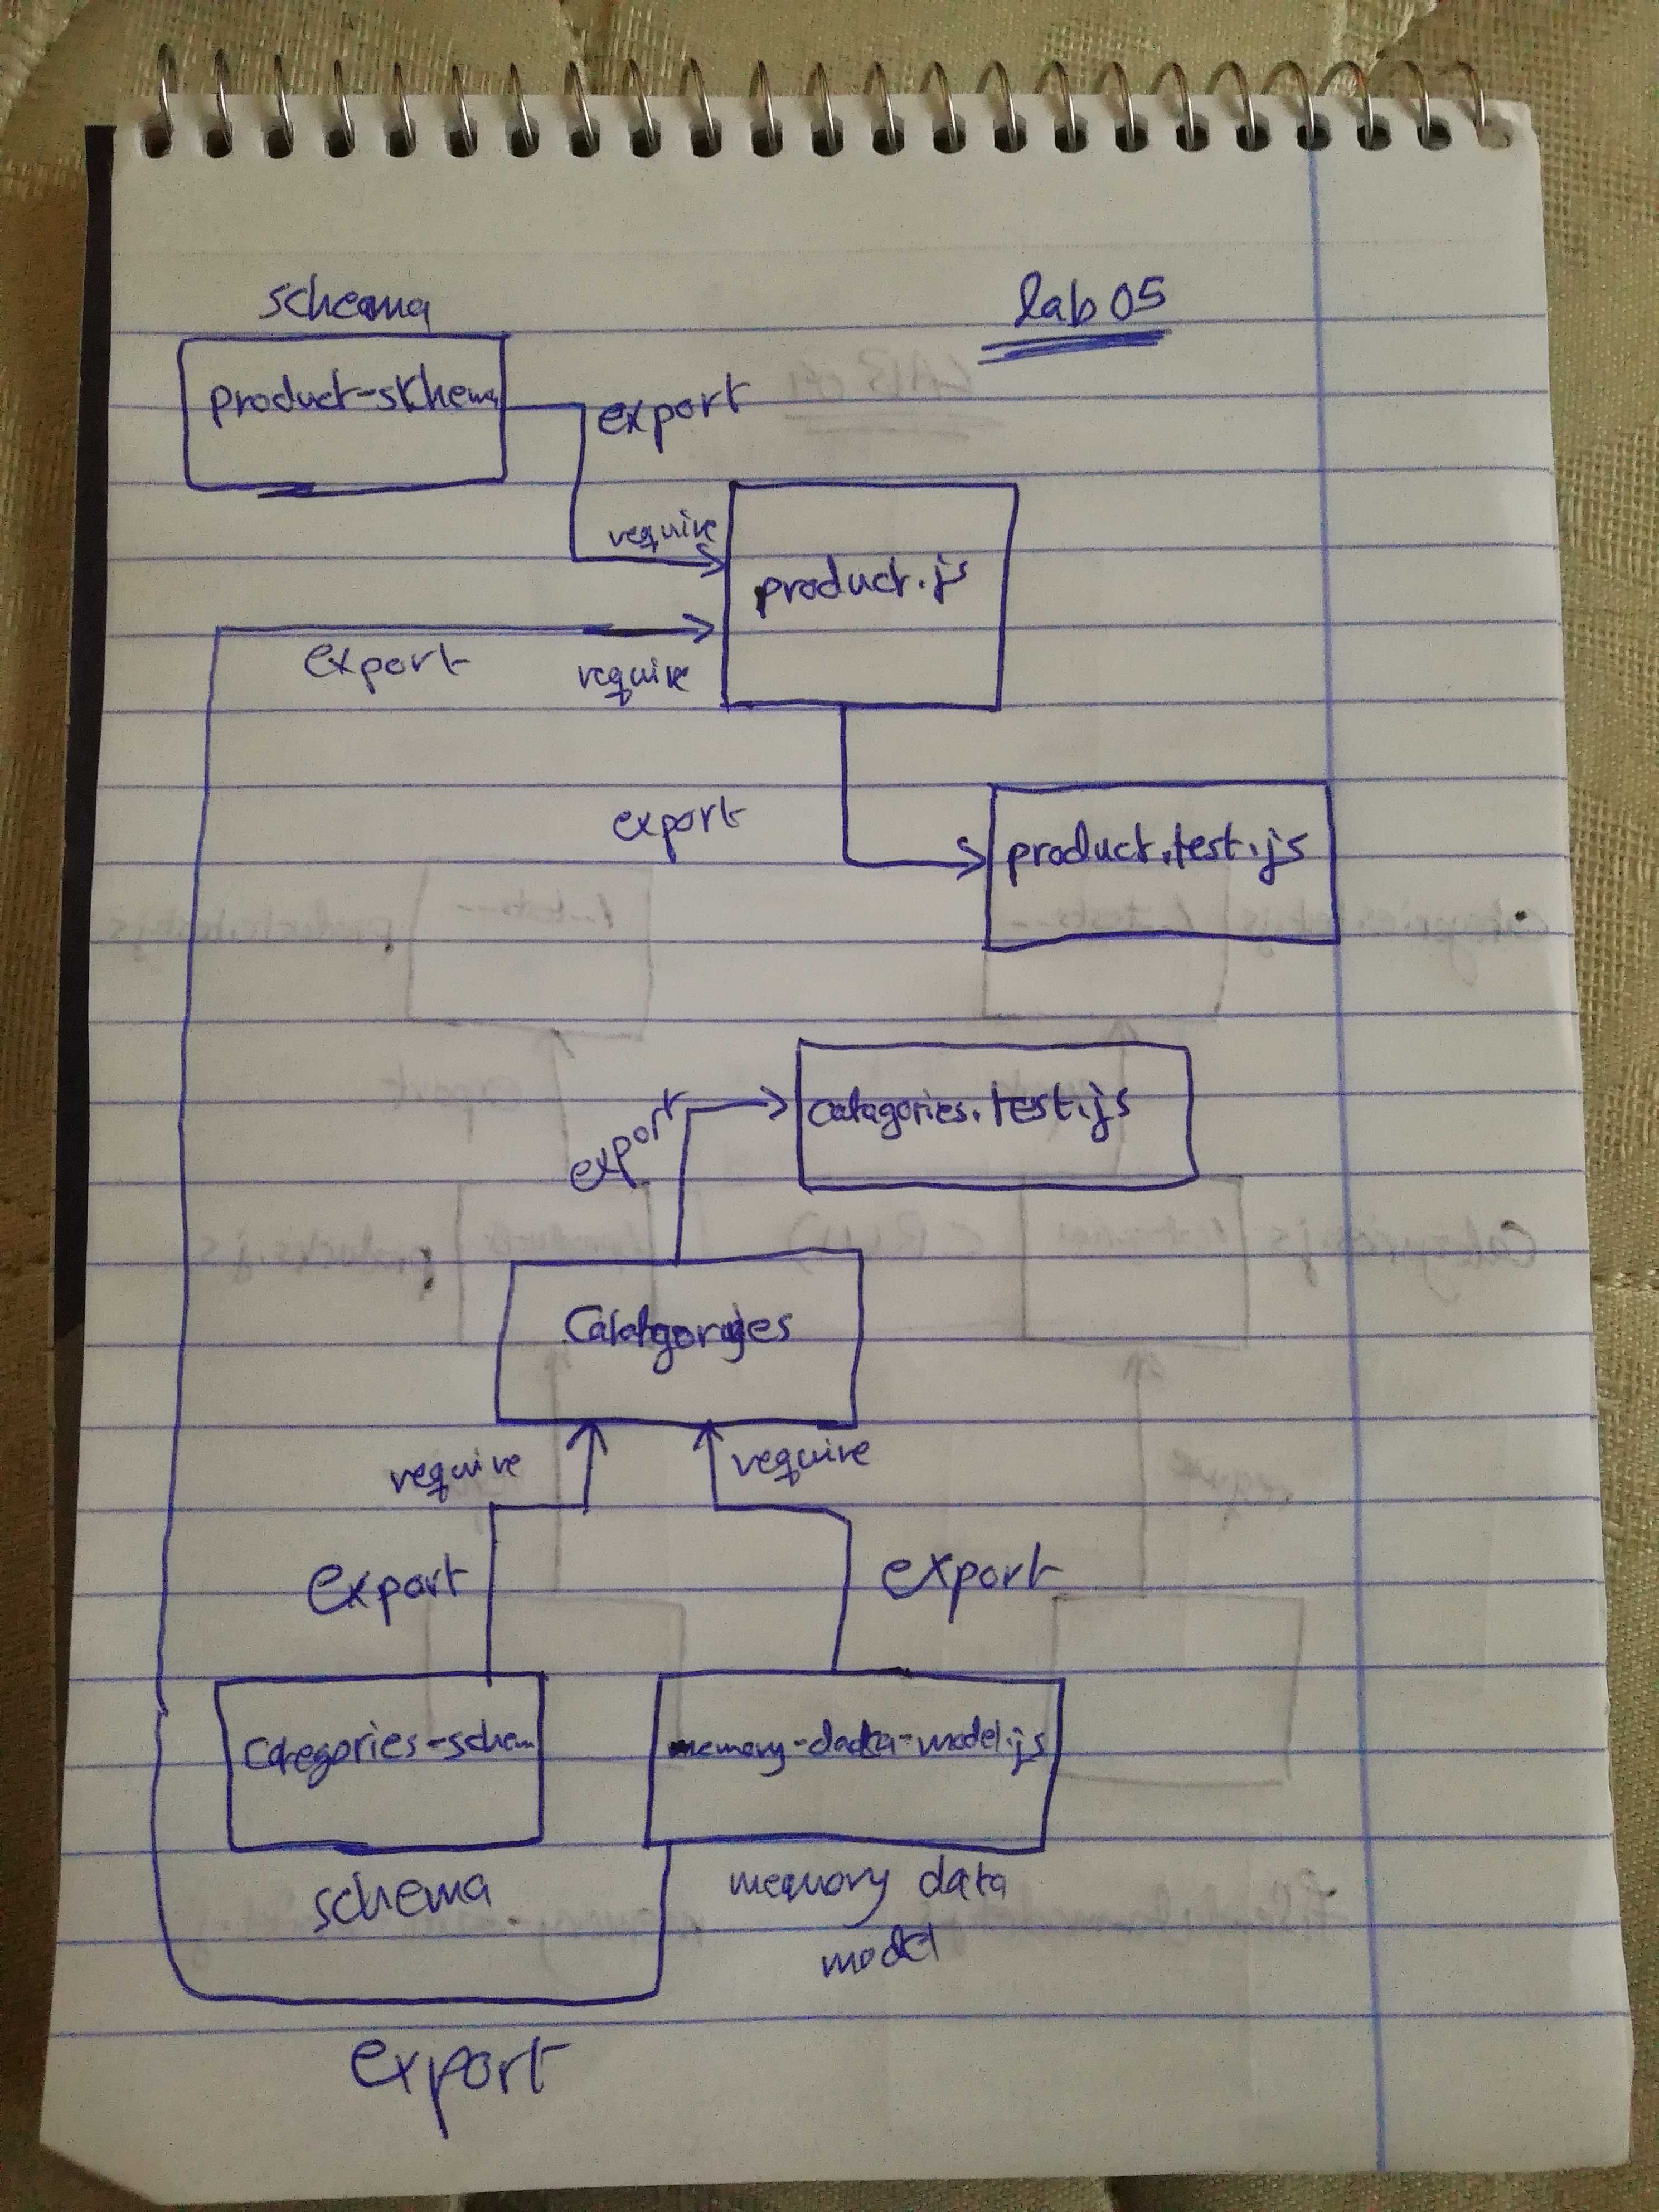 schema
lab 05
product-skhema
export
require
product.js
export
require
export
product.test.js
catagories.test.js
export
require
require
export
export
categories-schem
memory-data-model.js
schema
memory data
model
export